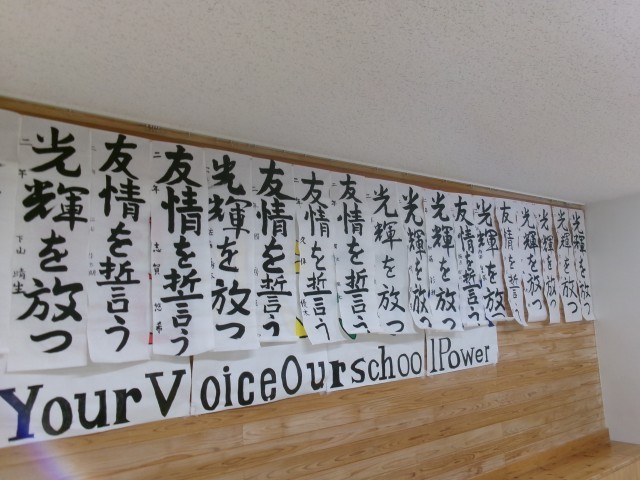 光輝を放つ
二年
友情を誓う
友情を誓う
二年 志賀 悠希
光輝を放つ
友情を誓う
友情を誓う
友情を誓う
光輝を放つ
光輝を放つ
光輝を放つ
友情を誓う
光輝を放つ
友情を誓う
光輝を放つ
光輝を放つ
光輝を放つ
光輝を放つ
Your Voice Our school Power